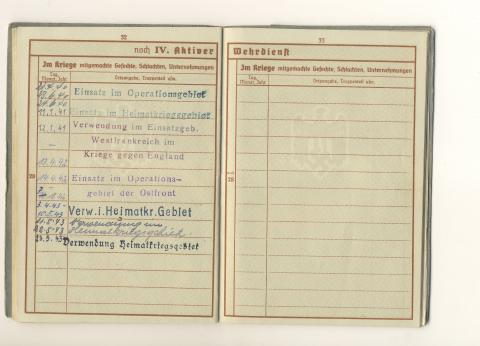 32
noch IV. Aktiver
Im Kriege mitgemachte Gefechte, Schlachten, Unternehmungen
Tag, Monat, Jahr
Ortsangabe, Truppenteil usw.
Einsatz im Operationsgebiet
11.1.41
Einsatz im Heimatkriegsgebiet
12.1.41
Verwendung im Einsatzgeb.
–
Westfrankreich im
Kriege gegen England
13.4.42
14.4.42
Einsatz im Operations-
gebiet der Ostfront
3.4.43-
10.5.43
Verw.i.Heimatkr.Gebiet
11.5.43
Verwendung im
Heimatkriegsgebiet
Verwendung Heimatkriegsgebiet
28
33
Wehrdienst
Im Kriege mitgemachte Gefechte, Schlachten, Unternehmungen
Tag, Monat, Jahr
Ortsangabe, Truppenteil usw.
28